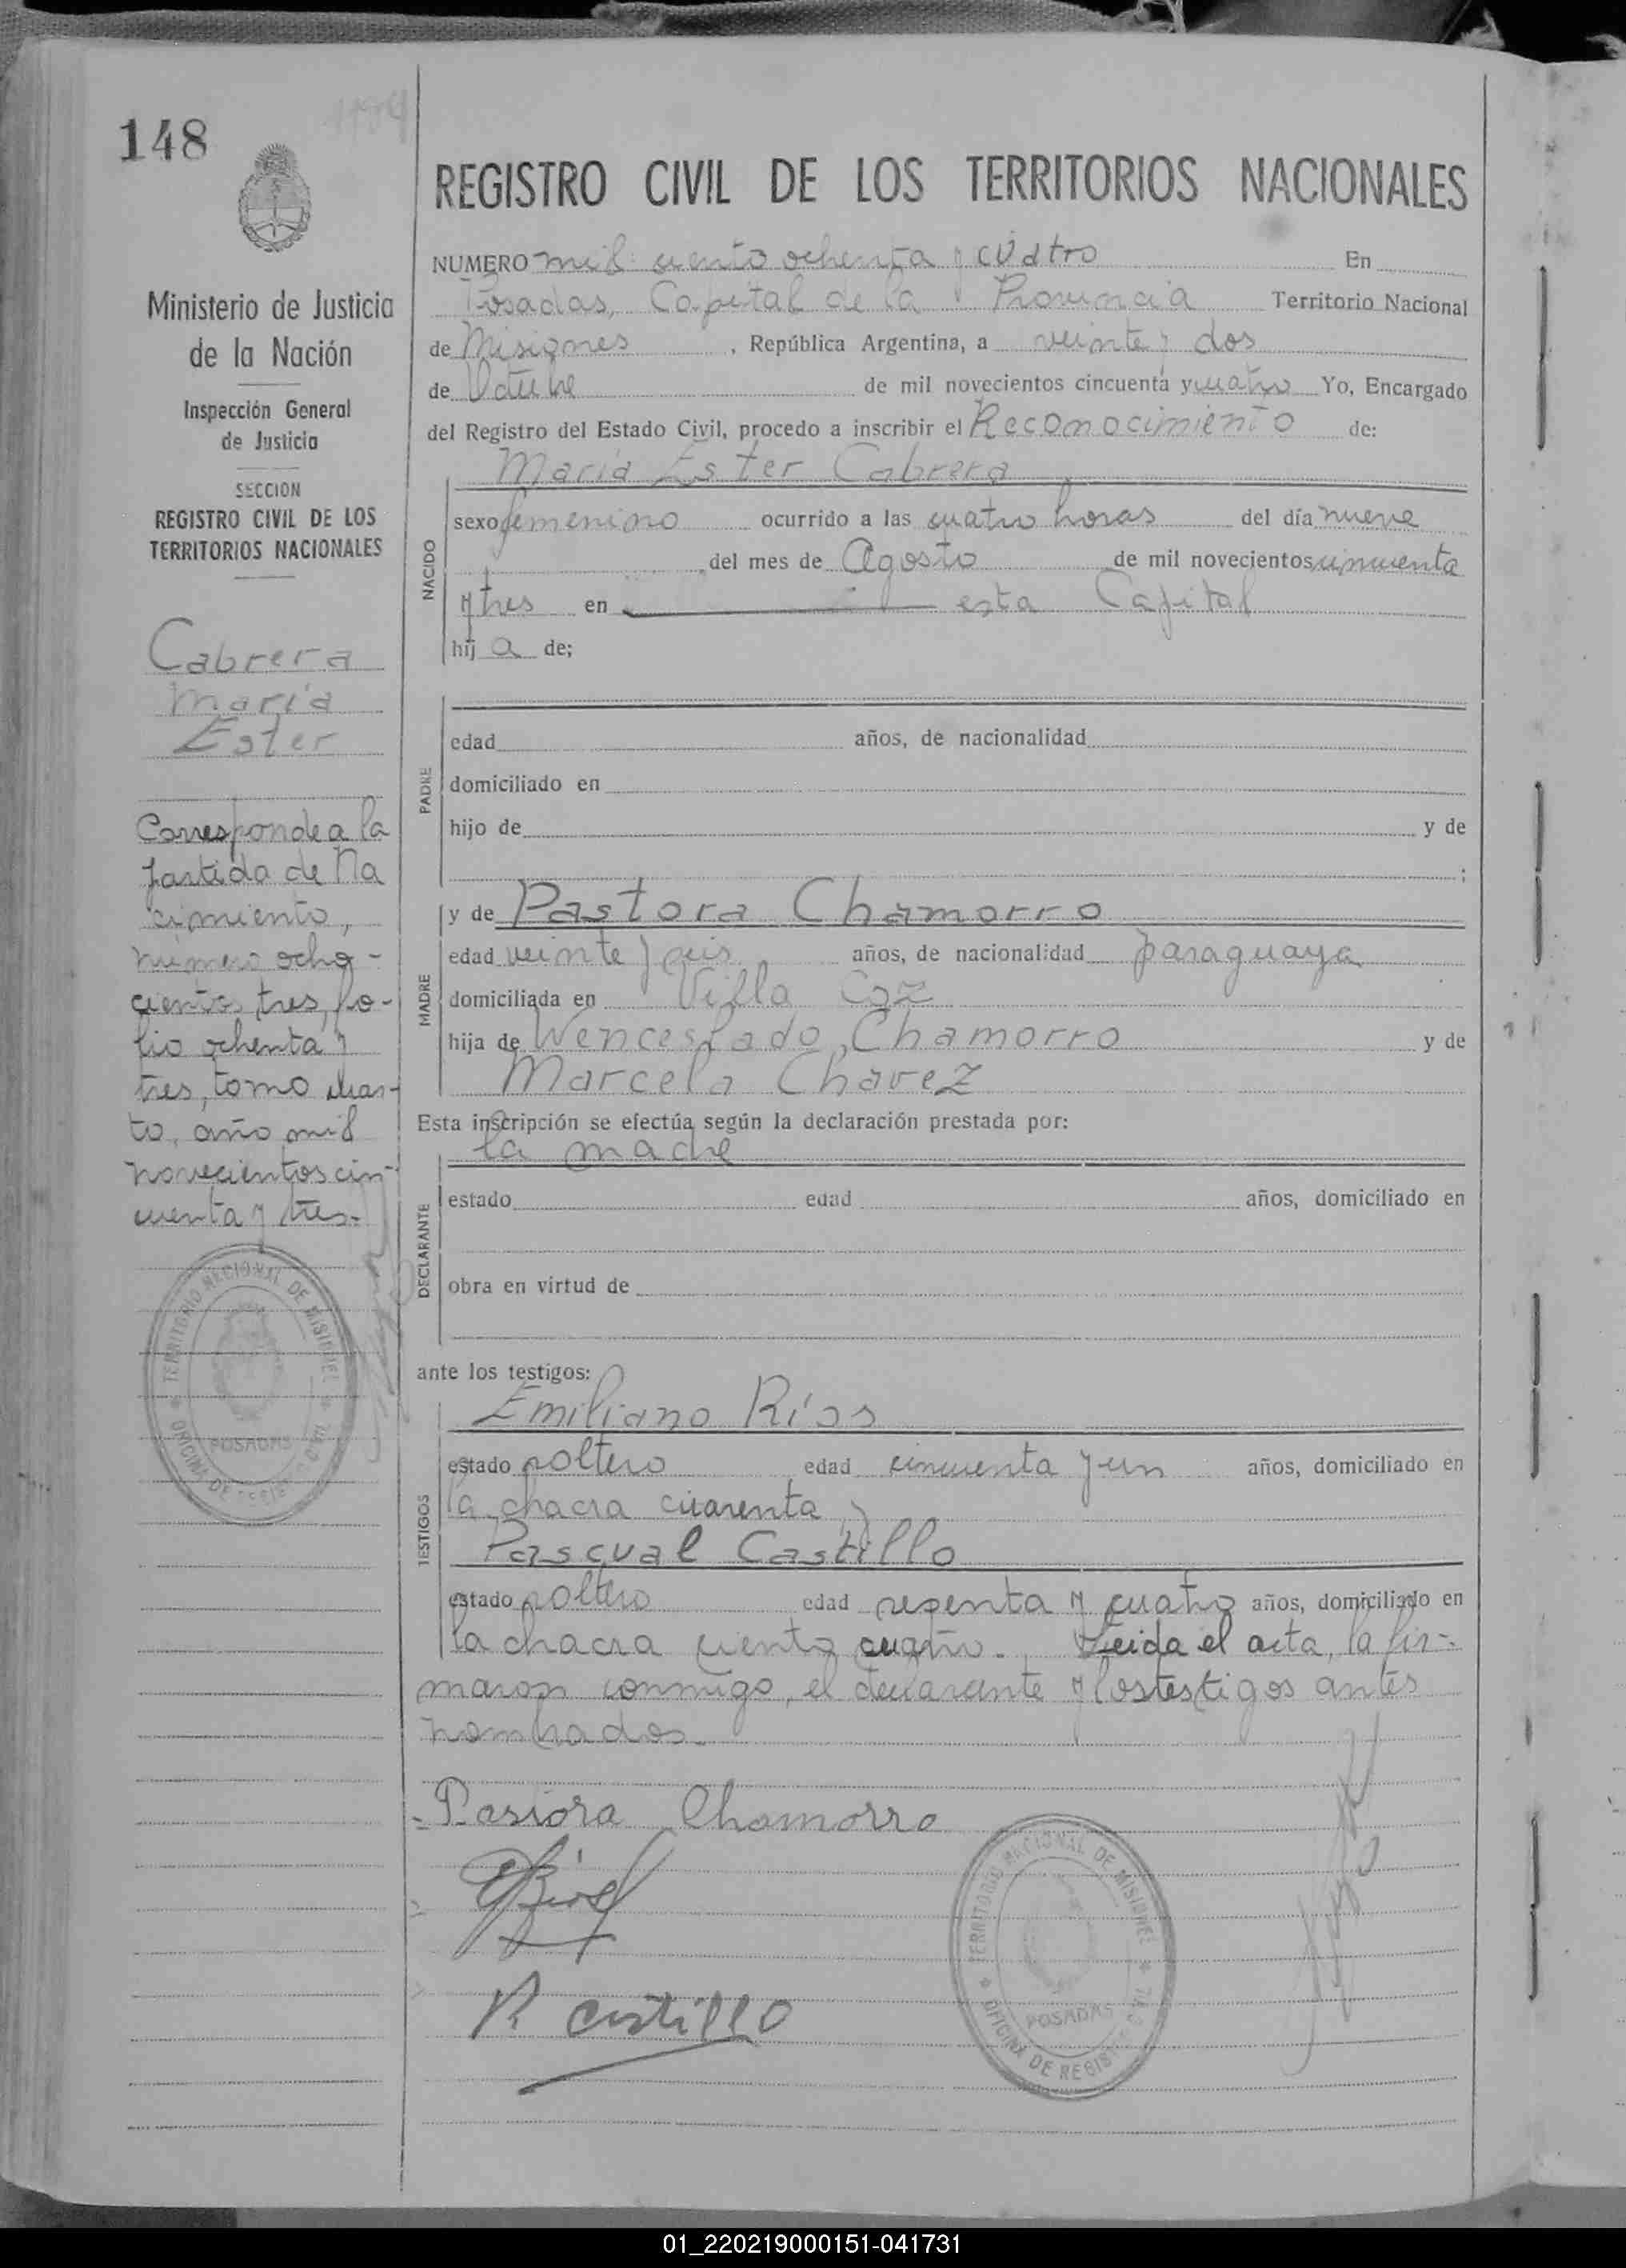 148
1184
Ministerio de Justicia
de la Nación
Inspección General
de Justicia
SECCION
REGISTRO CIVIL DE LOS
TERRITORIOS NACIONALES
Cabrera
María
Ester
Corresponde a la
partida de Na
cimiento,
número ocho-
cientos tres, fo-
lio ochenta y
tres, tomo cuar-
to, año mil
novecientos cin-
cuenta y tres.-
TERRITORIO NACIONAL DE MISIONES
POSADAS
OFICINA DE REGISTRO CIVIL
REGISTRO CIVIL DE LOS TERRITORIOS NACIONALES
NUMERO mil ciento ochenta y cuatro En
Posadas, Capital de la Provincia Territorio Nacional
de Misiones, República Argentina, a veinte y dos
de Octubre de mil novecientos cincuenta y cuatro Yo, Encargado
del Registro del Estado Civil, procedo a inscribir el Reconocimiento de:
María Ester Cabrera
NACIDO
sexo femenino ocurrido a las cuatro horas del día nueve
del mes de Agosto de mil novecientos cincuenta
y tres en esta Capital
hij a de;
PADRE
edad años, de nacionalidad
domiciliado en
hijo de y de
;
MADRE
y de Pastora Chamorro
edad veinte y seis años, de nacionalidad paraguaya
domiciliada en Villa Coz
hija de Wenceslado Chamorro y de
Marcela Chavez
Esta inscripción se efectúa según la declaración prestada por:
la madre
DECLARANTE
estado edad años, domiciliado en
obra en virtud de
ante los testigos:
TESTIGOS
Emiliano Ríos
estado soltero edad cincuenta y un años, domiciliado en
la chacra cuarenta y
Pascual Castillo
estado soltero edad sesenta y cuatro años, domiciliado en
la chacra ciento cuatro. Leida el acta, la fir-
maron conmigo, el declarante y los testigos antes
nombrados.-
Pastora Chamorro
ERios
P Castillo
TERRITORIO NACIONAL DE MISIONES
POSADAS
OFICINA DE REGISTRO CIVIL
01_220219000151-041731